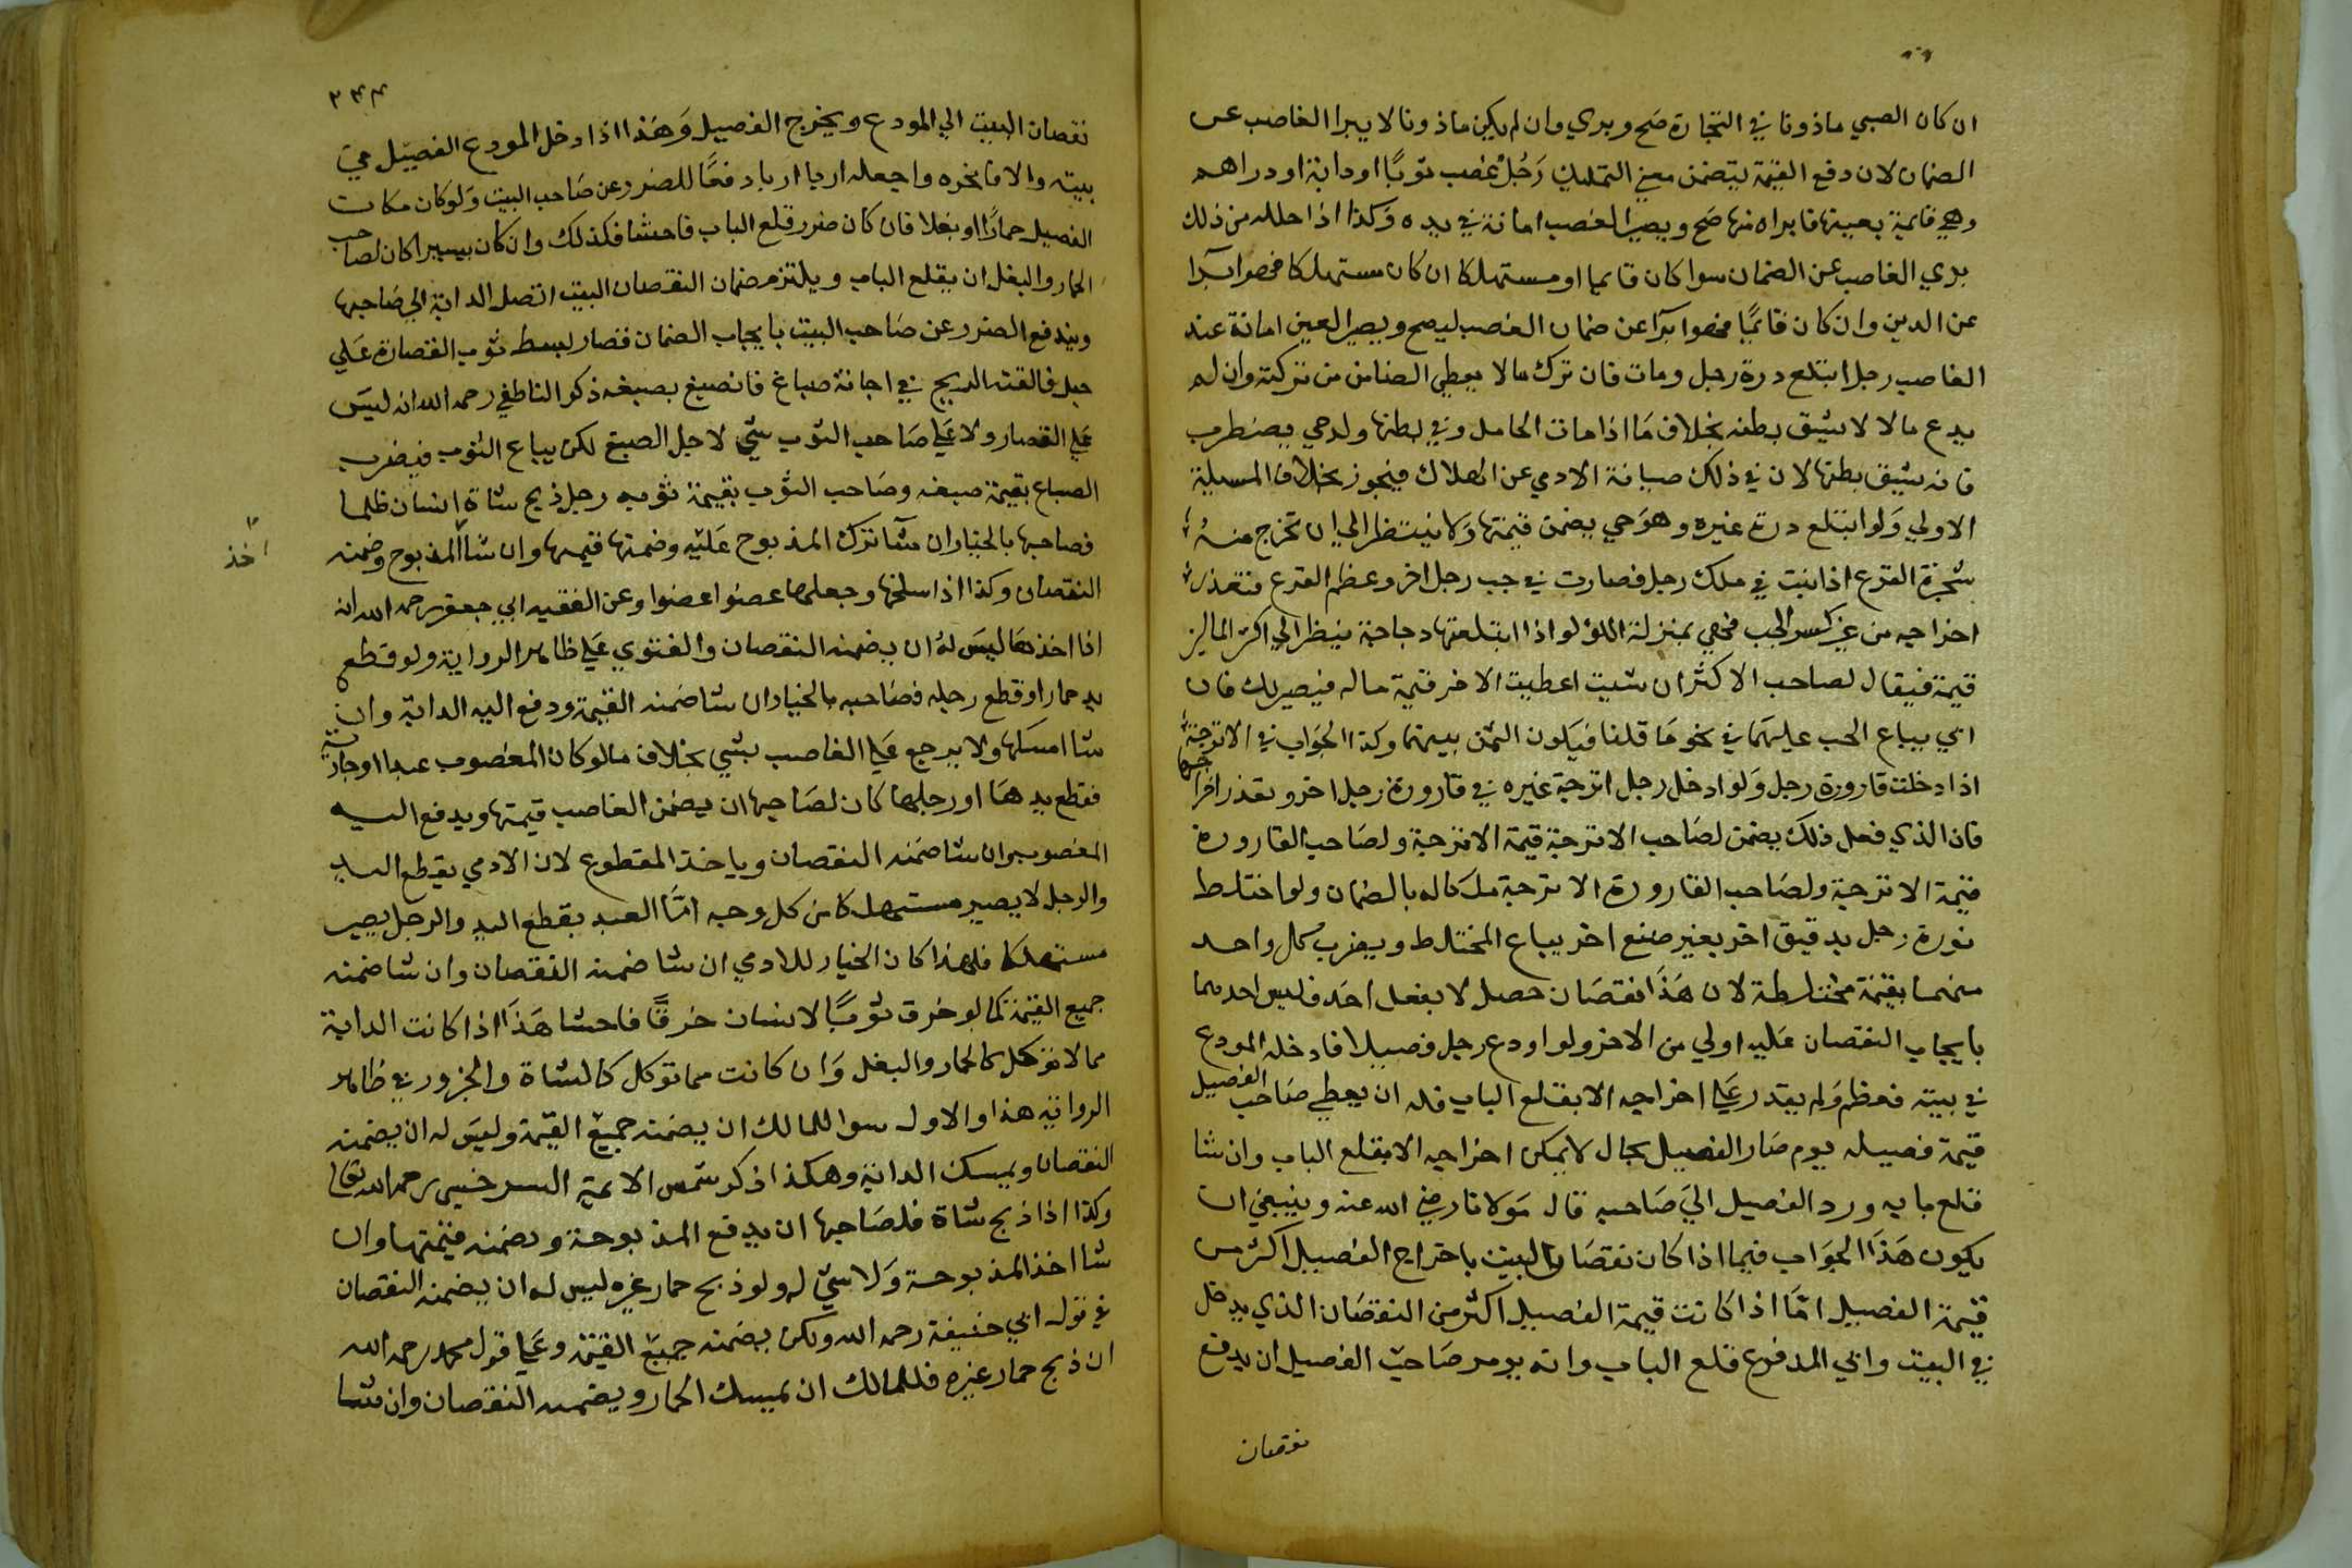 ان كان الصبي ماذونا في التجارة صح وبري وان لم يكن ماذونا لا يبرا الغاصب عن
الضمان لان دفع القيمة يتضمن معني التمليك رَجُل غصب ثوبًا او دابة او دراهم
وهي قايمة بعينها فابراه منها صح ويصير الغصب امانة في يده وَكذا اذا حلله من ذلك
بري الغاصب عن الضمان سوا كان قايما او مستهلكا ان كان مستهلكا فهو ابرآ
عن الدين وان كان قائمًا فهو ابرآ عن ضمان الغصب ليصح ويصير العين امانة عند
الغاصب رجل ابتلع درة رجل ومات فان ترك مالا يعطي الضامن من تركته وان لم
يدع مالا لا يشق بطنه بخلاف مَا اذا مات الحامل وفي بطنها ولد حي يضطرب
فانه يشق بطنها لان في ذلك صيانة الادمي عن الهلاك فيجوز بخلاف المسيلة
الاولي وَلو ابتلع درة غيره وهوَ حي يضمن قيمتها وَلا ينتظر الي ان تخرج منهُ
شجرة القرع اذا نبت في ملك رجل فصارت في جب رجل اخر وعظم القرع فتعذر
اخراجه من غير كسر الجب فهي بمنزلة اللولو اذا ابتلعتها دجاجة ينظر الي اكثر المالين
قيمة فيقال لصاحب الاكثر ان شيت اعطيت الاخر قيمة ماله فيصير لك فان
ابي يباع الجب عليهمَا في نحو مَا قلنا فيَكون الثمن بينهما وكذا الجوَاب في الاترجة
اذا دخلت قارورة رجل وَلو ادخل رجل اترجة غيره في قارورة رجل اخر وتعذر اخراجها
فان الذي فعل ذلك يضمن لصَاحب الاترجة قيمة الاترجة ولصَاحب القارورة
قيمة الاترجة ولصَاحب القارورة الاترجة ملكا له بالضمان ولو اختلط
نورة رجل بدقيق اخر بغير صنع احد يباع المختلط ويضرب كل واحد
منهما بقيمة مختلطة لان هَذَا نقصَان حصل لا بفعل احَد فليس احدهما
بايجاب النقصان عليه اولي من الاخر ولو اودع رجل فصيلا فادخله المودع
في بيته فعظم وَلم يقدر عَلي اخراجه الا بقلع الباب فله ان يعطي صَاحب الفصيل
قيمة فصيله يوم صَار الفصيل بحال لا يمكن اخراجه الا بقلع الباب وان شا
قلع بابه ورد الفصيل اليَ صَاحبه قال مَولانا رضي الله عنه وينبغي ان
يكون هَذَا الجوَاب فيما اذا كان نقصَان البيت باخراج الفصيل اكثر من
قيمة الفصيل امَّا اذا كانت قيمة الفصيل اكثر من النقصَان الذي يدخل
في البيت وابي المدفوع قلع الباب وانه يومر صَاحب الفصيل ان يدفع
نقصان
٣٤٤
نقصان البيت الي المودع ويخرج الفصيل وَهَذا اذا ادخل المودع الفصيل في
بيته والا فانحره واجعله اربا اربا دفعًا للضرر عن صَاحب البيت وَلو كان مكان
الفصيل حمارًا او بغلا فان كان ضرر قلع الباب فاحشا فكذلك وان كان يسيرا كان لصاحب
الحمار والبغل ان يقلع الباب ويلتزم ضمان النقصان البيت اتصل الدابة الي صَاحبها
ويندفع الضرر عن صَاحب البيت بايجاب الضمان قصار بسط ثوب القصارة عَلي
حبل فالقته الريح في اجانة صباغ فانصبغ بصبغه ذكر الناطفي رحمه الله انه ليسَ
عَلي القصار ولا عَلي صَاحب الثوب شي لاجل الصبغ لكن يباع الثوب فيضرب
الصباغ بقيمة صبغه وصَاحب الثوب بقيمة ثوبه رجل ذبح شاة انسان ظلما
فصاحبها بالخيار ان شآ ترك المذبوح عَليه وضمنها قيمتها وان شا المذبوح وضمنه
اخذ
النقصان وكذا اذا سلخها وجعلها عضوا عضوا وعن الفقيه ابي جعفر رحمه الله انه
اذا اخذهَا ليسَ لهُ ان يضمنه النقصان والفتوي عَلي ظاهر الرواية ولو قطع
يد حمار او قطع رجله فصَاحبه بالخيار ان شا ضمنه القيمة ودفع اليه الدابة وان
شا امسكها ولا يرجع عَلي الغاصب بشي بخلاف ما لو كان المغصوب عبدا او جارية
فقطع يدهَا او رجلها كان لصَاحبها ان يضمن الغاصب قيمتها ويدفع اليه
المغصوب وان شا ضمنه النقصان وياخذ المقطوع لان الادمي بقطع اليد
والرجل لا يصير مستهلكا من كل وجه امَّا العبد بقطع اليد والرجل يصير
مستهلكا فلهذا كان الخيار للادمي ان شا ضمنه النقصان وان شا ضمنه
جميع القيمة كما لو خرق ثوبًا لانسان خرقًا فاحشا هَذَا اذا كانت الدابة
مما لا توكل كالحمار والبغل وَان كانت مما توكل كالشاة والجزور في ظاهر
الرواية هذا والاول سوا للمالك ان يضمنه جميع القيمة وليسَ له ان يضمنه
النقصان ويمسك الدابة وهكذا ذكر شمس الايمة السرخسي رحمه الله تعالي
وكذا اذا ذبح شاة فلصَاحبها ان يدفع المذبوحة ويضمنه قيمتها وان
شا اخذ المذبوحة وَلا شي له ولو ذبح حمار غيره ليس له ان يضمنه النقصان
في قول ابي حنيفة رحمه الله ولكن يضمنه جميع القيمة وعَلي قول محمد رحمه الله
ان ذبح حمار غيره فللمالك ان يمسك الحمار ويضمنه النقصان وان شا